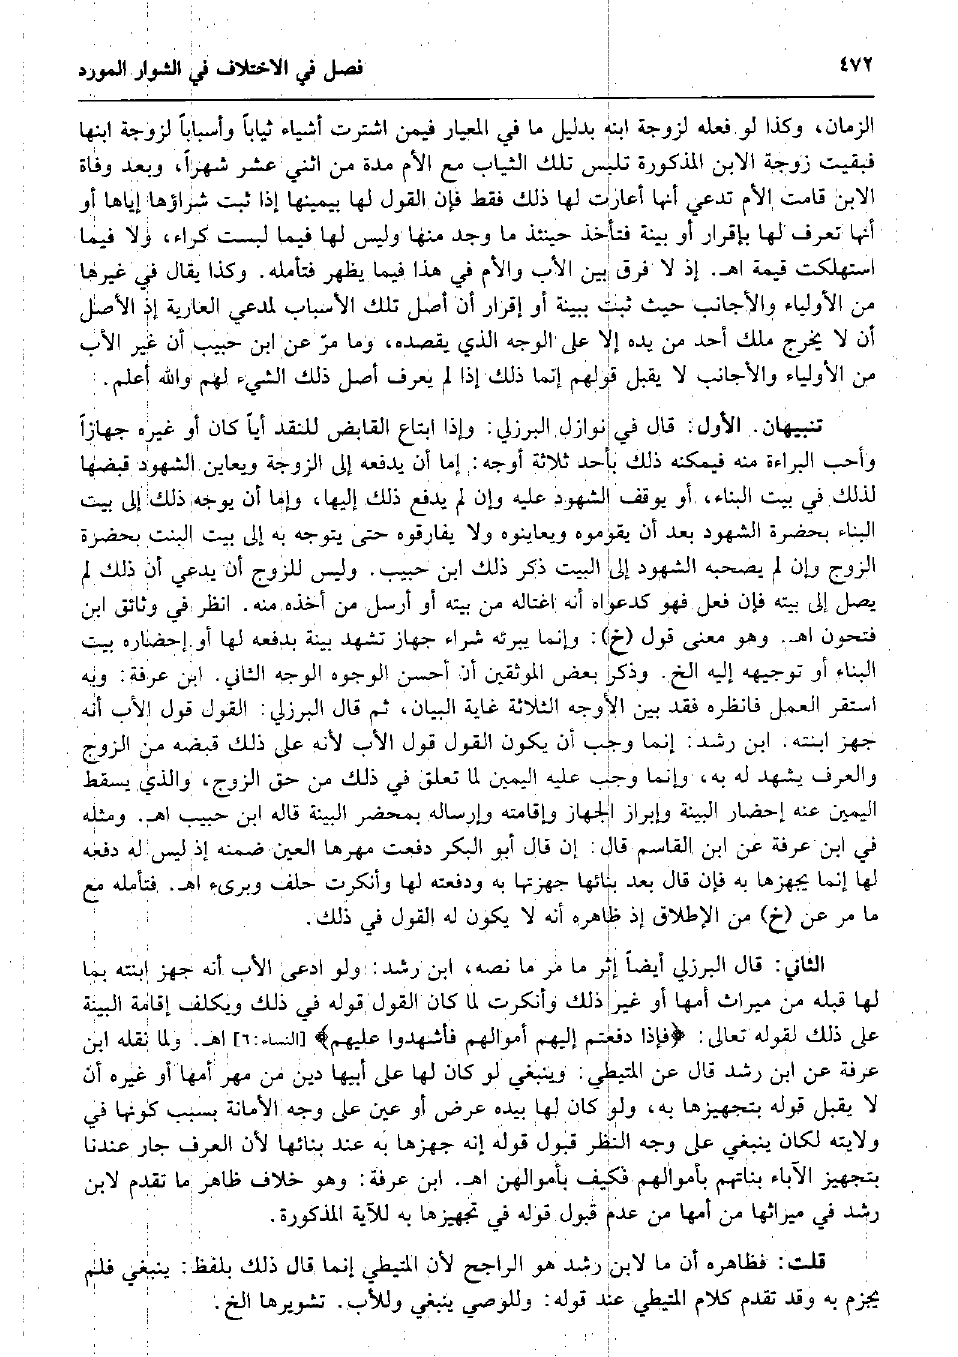 ٤٧٢
فصل في الاختلاف في الشوار المورد
الزمان، وكذا لو فعله لزوجة ابنه بدليل ما في المعيار فيمن اشترت أشياء ثياباً وأسباباً لزوجة ابنها
فبقيت زوجة الابن المذكورة تلبس تلك الثياب مع الأم مدة من اثني عشر شهراً، وبعد وفاة
الابن قامت الأم تدعي أنها أعارت لها ذلك فقط فإن القول لها بيمينها إذا ثبت شراؤها إياها أو
أنها تعرف لها بإقرار أو بينة فتأخذ حينئذ ما وجد منها وليس لها فيما لبست كراء، ولا فيما
استهلكت قيمة اهـ. إذ لا فرق بين الأب والأم في هذا فيما يظهر فتأمله. وكذا يقال في غيرها
من الأولياء والأجانب حيث ثبت ببينة أو إقرار أن أصل تلك الأسباب لمدعي العارية إذ الأصل
أن لا يخرج ملك أحد من يده إلا على الوجه الذي يقصده، وما مرّ عن ابن حبيب أن غير الأب
من الأولياء والأجانب لا يقبل قولهم إنما ذلك إذا لم يعرف أصل ذلك الشيء لهم والله أعلم.
تنبيهان. الأول: قال في نوازل البرزلي: وإذا ابتاع القابض للنقد أياً كان أو غيره جهازاً
وأحب البراءة منه فيمكنه ذلك بأحد ثلاثة أوجه: إما أن يدفعه إلى الزوجة ويعاين الشهود قبضها
لذلك في بيت البناء، أو يوقف الشهود عليه وإن لم يدفع ذلك إليها، وإما أن يوجه ذلك إلى بيت
البناء بحضرة الشهود بعد أن يقوموه ويعاينوه ولا يفارقوه حتى يتوجه به إلى بيت البنت بحضرة
الزوج وإن لم يصحبه الشهود إلى البيت ذكر ذلك ابن حبيب. وليس للزوج أن يدعي أن ذلك لم
يصل إلى بيته فإن فعل فهو كدعواه أنه اغتاله من بيته أو أرسل من أخذه منه. انظر في وثائق ابن
فتحون اهـ. وهو معنى قول (خ): وإنما يبرئه شراء جهاز تشهد بينة بدفعه لها أو إحضاره بيت
البناء أو توجيهه إليه الخ. وذكر بعض الموثقين أن أحسن الوجوه الوجه الثاني. ابن عرفة: وبه
استقر العمل فانظره فقد بين الأوجه الثلاثة غاية البيان، ثم قال البرزلي: القول قول الأب أنه
جهز ابنته. ابن رشد: إنما وجب أن يكون القول قول الأب لأنه على ذلك قبضه من الزوج
والعرف يشهد له به، وإنما وجب عليه اليمين لما تعلق في ذلك من حق الزوج، والذي يسقط
اليمين عنه إحضار البينة وإبراز الجهاز وإقامته وإرساله بمحضر البينة قاله ابن حبيب اهـ. ومثله
في ابن عرفة عن ابن القاسم قال: إن قال أبو البكر دفعت مهرها العين ضمنه إذ ليس له دفعه
لها إنما يجهزها به فإن قال بعد بنائها جهزتها به ودفعته لها وأنكرت حلف وبرىء اهـ. فتأمله مع
ما مر عن (خ) من الإطلاق إذ ظاهره أنه لا يكون له القول في ذلك.
الثاني: قال البرزلي أيضاً إثر ما مر ما نصه، ابن رشد: ولو ادعى الأب أنه جهز ابنته بما
لها قبله من ميراث أمها أو غير ذلك وأنكرت لما كان القول قوله في ذلك ويكلف إقامة البينة
على ذلك لقوله تعالى: ﴿فإذا دفعتم إليهم أموالهم فأشهدوا عليهم﴾ [النساء: ٦] اهـ. ولما نقله ابن
عرفة عن ابن رشد قال عن المتيطي: وينبغي لو كان لها على أبيها دين من مهر أمها أو غيره أن
لا يقبل قوله بتجهيزها به، ولو كان لها بيده عرض أو عين على وجه الأمانة بسبب كونها في
ولايته لكان ينبغي على وجه النظر قبول قوله إنه جهزها به عند بنائها لأن العرف جار عندنا
بتجهيز الآباء بناتهم بأموالهم فكيف بأموالهن اهـ. ابن عرفة: وهو خلاف ظاهر ما تقدم لابن
رشد في ميراثها من أمها من عدم قبول قوله في تجهيزها به للآية المذكورة.
قلت: فظاهره أن ما لابن رشد هو الراجح لأن المتيطي إنما قال ذلك بلفظ: ينبغي فلم
يجزم به وقد تقدم كلام المتيطي عند قوله: وللوصي ينبغي وللأب. تشويرها الخ.